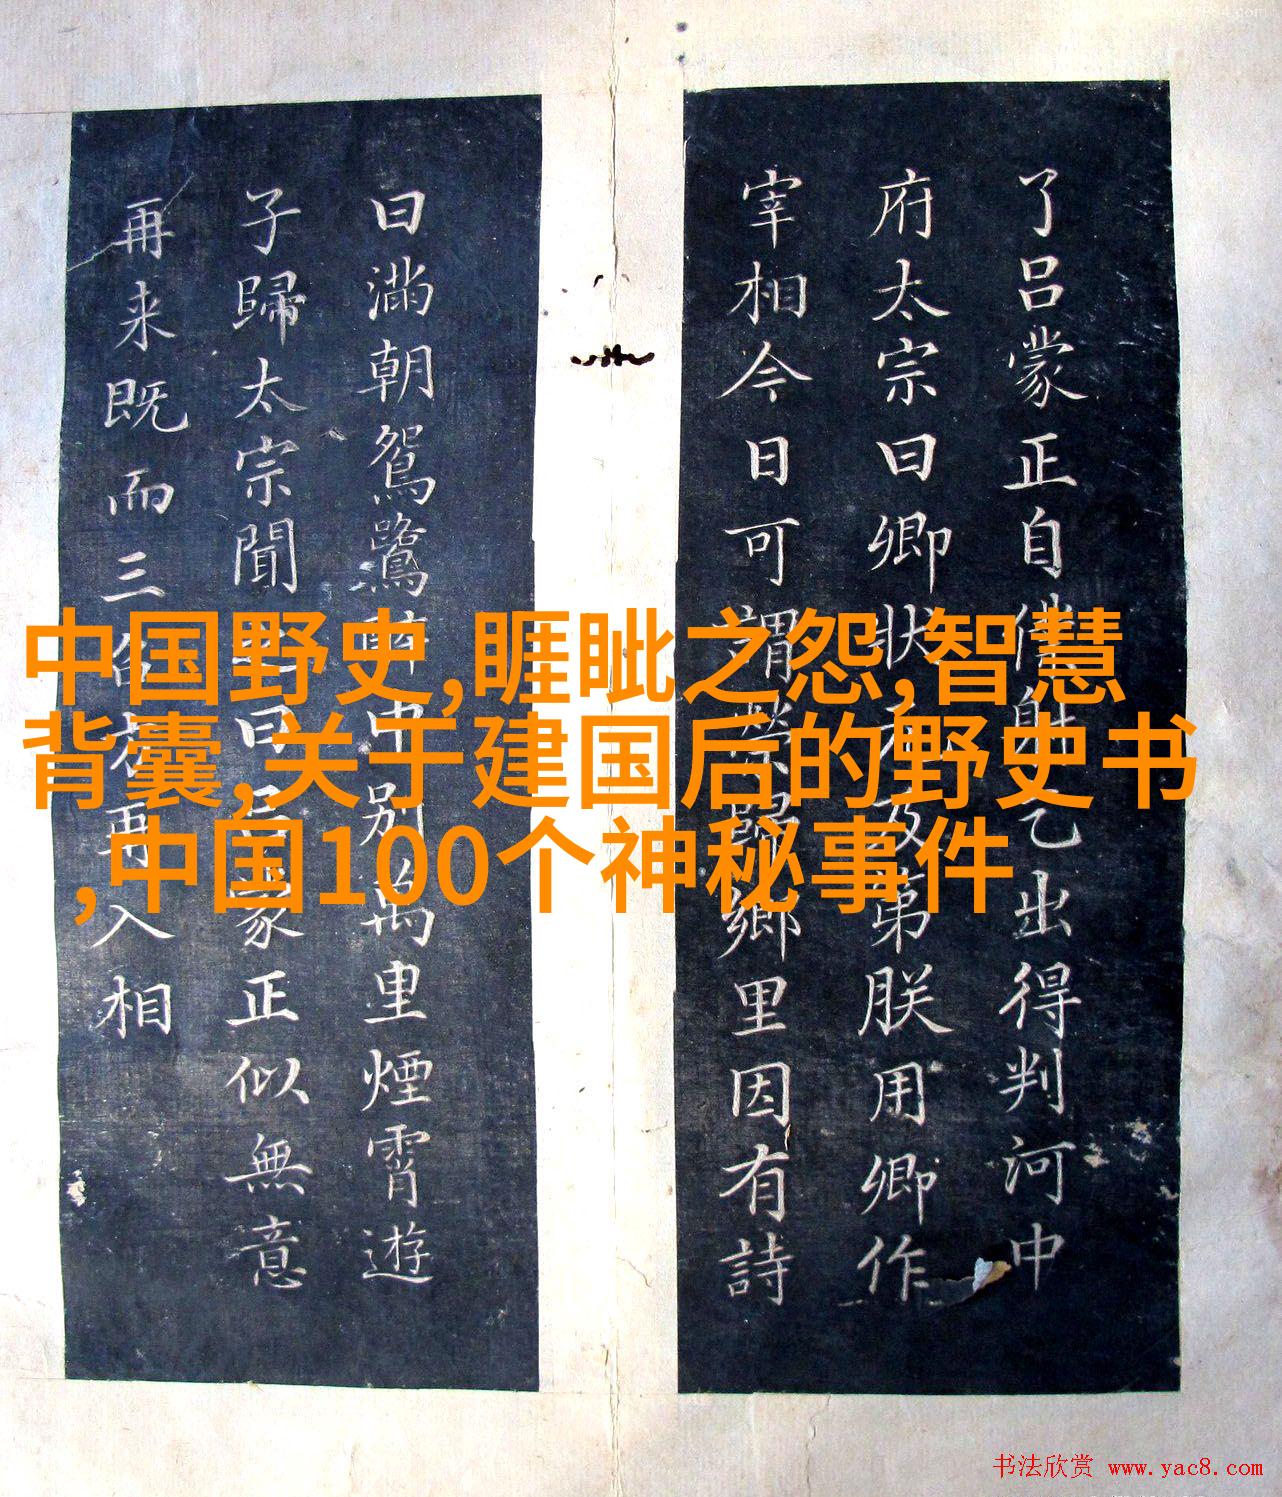 了吕蒙正自僕射乞出得判河中
府太宗曰卿狀元及第朕用卿作
宰相今日可謂榮歸鄉里因有詩
曰滿朝鴛鷺醉中别萬里煙霄遊
子歸太宗聞之曰吕蒙正似無意
再来既而三召方再入相
中国野史,睚眦之怨,智慧
背囊,关于建国后的野史书
,中国100个神秘事件
书法欣赏 www.yac8.com